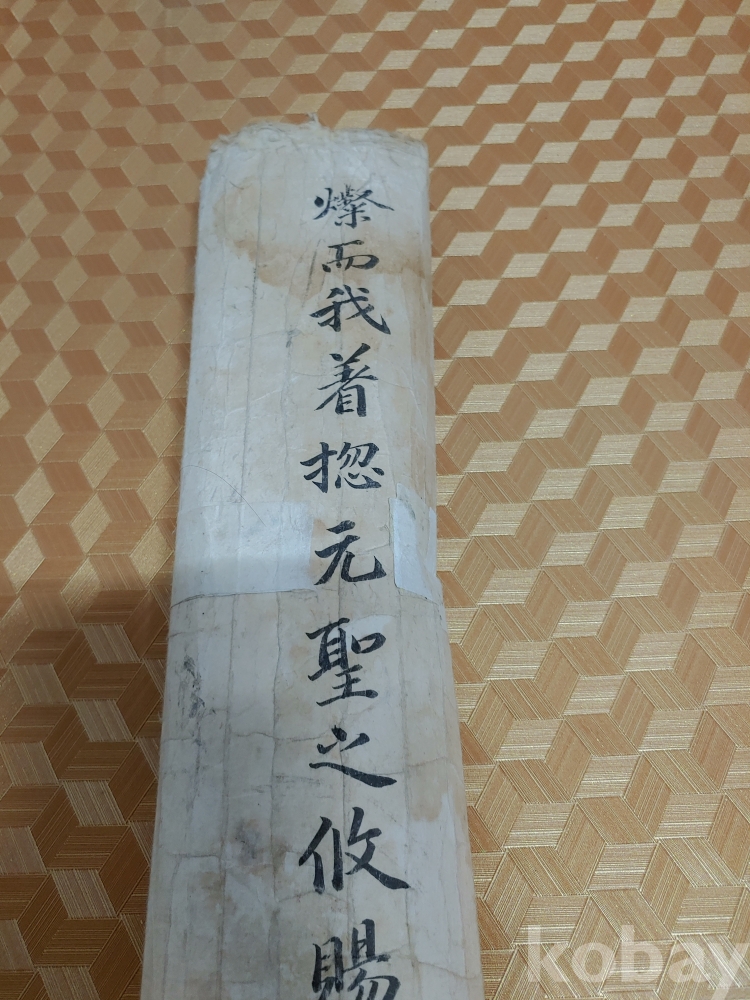 燦而我着揔元聖之攸賜
kobay